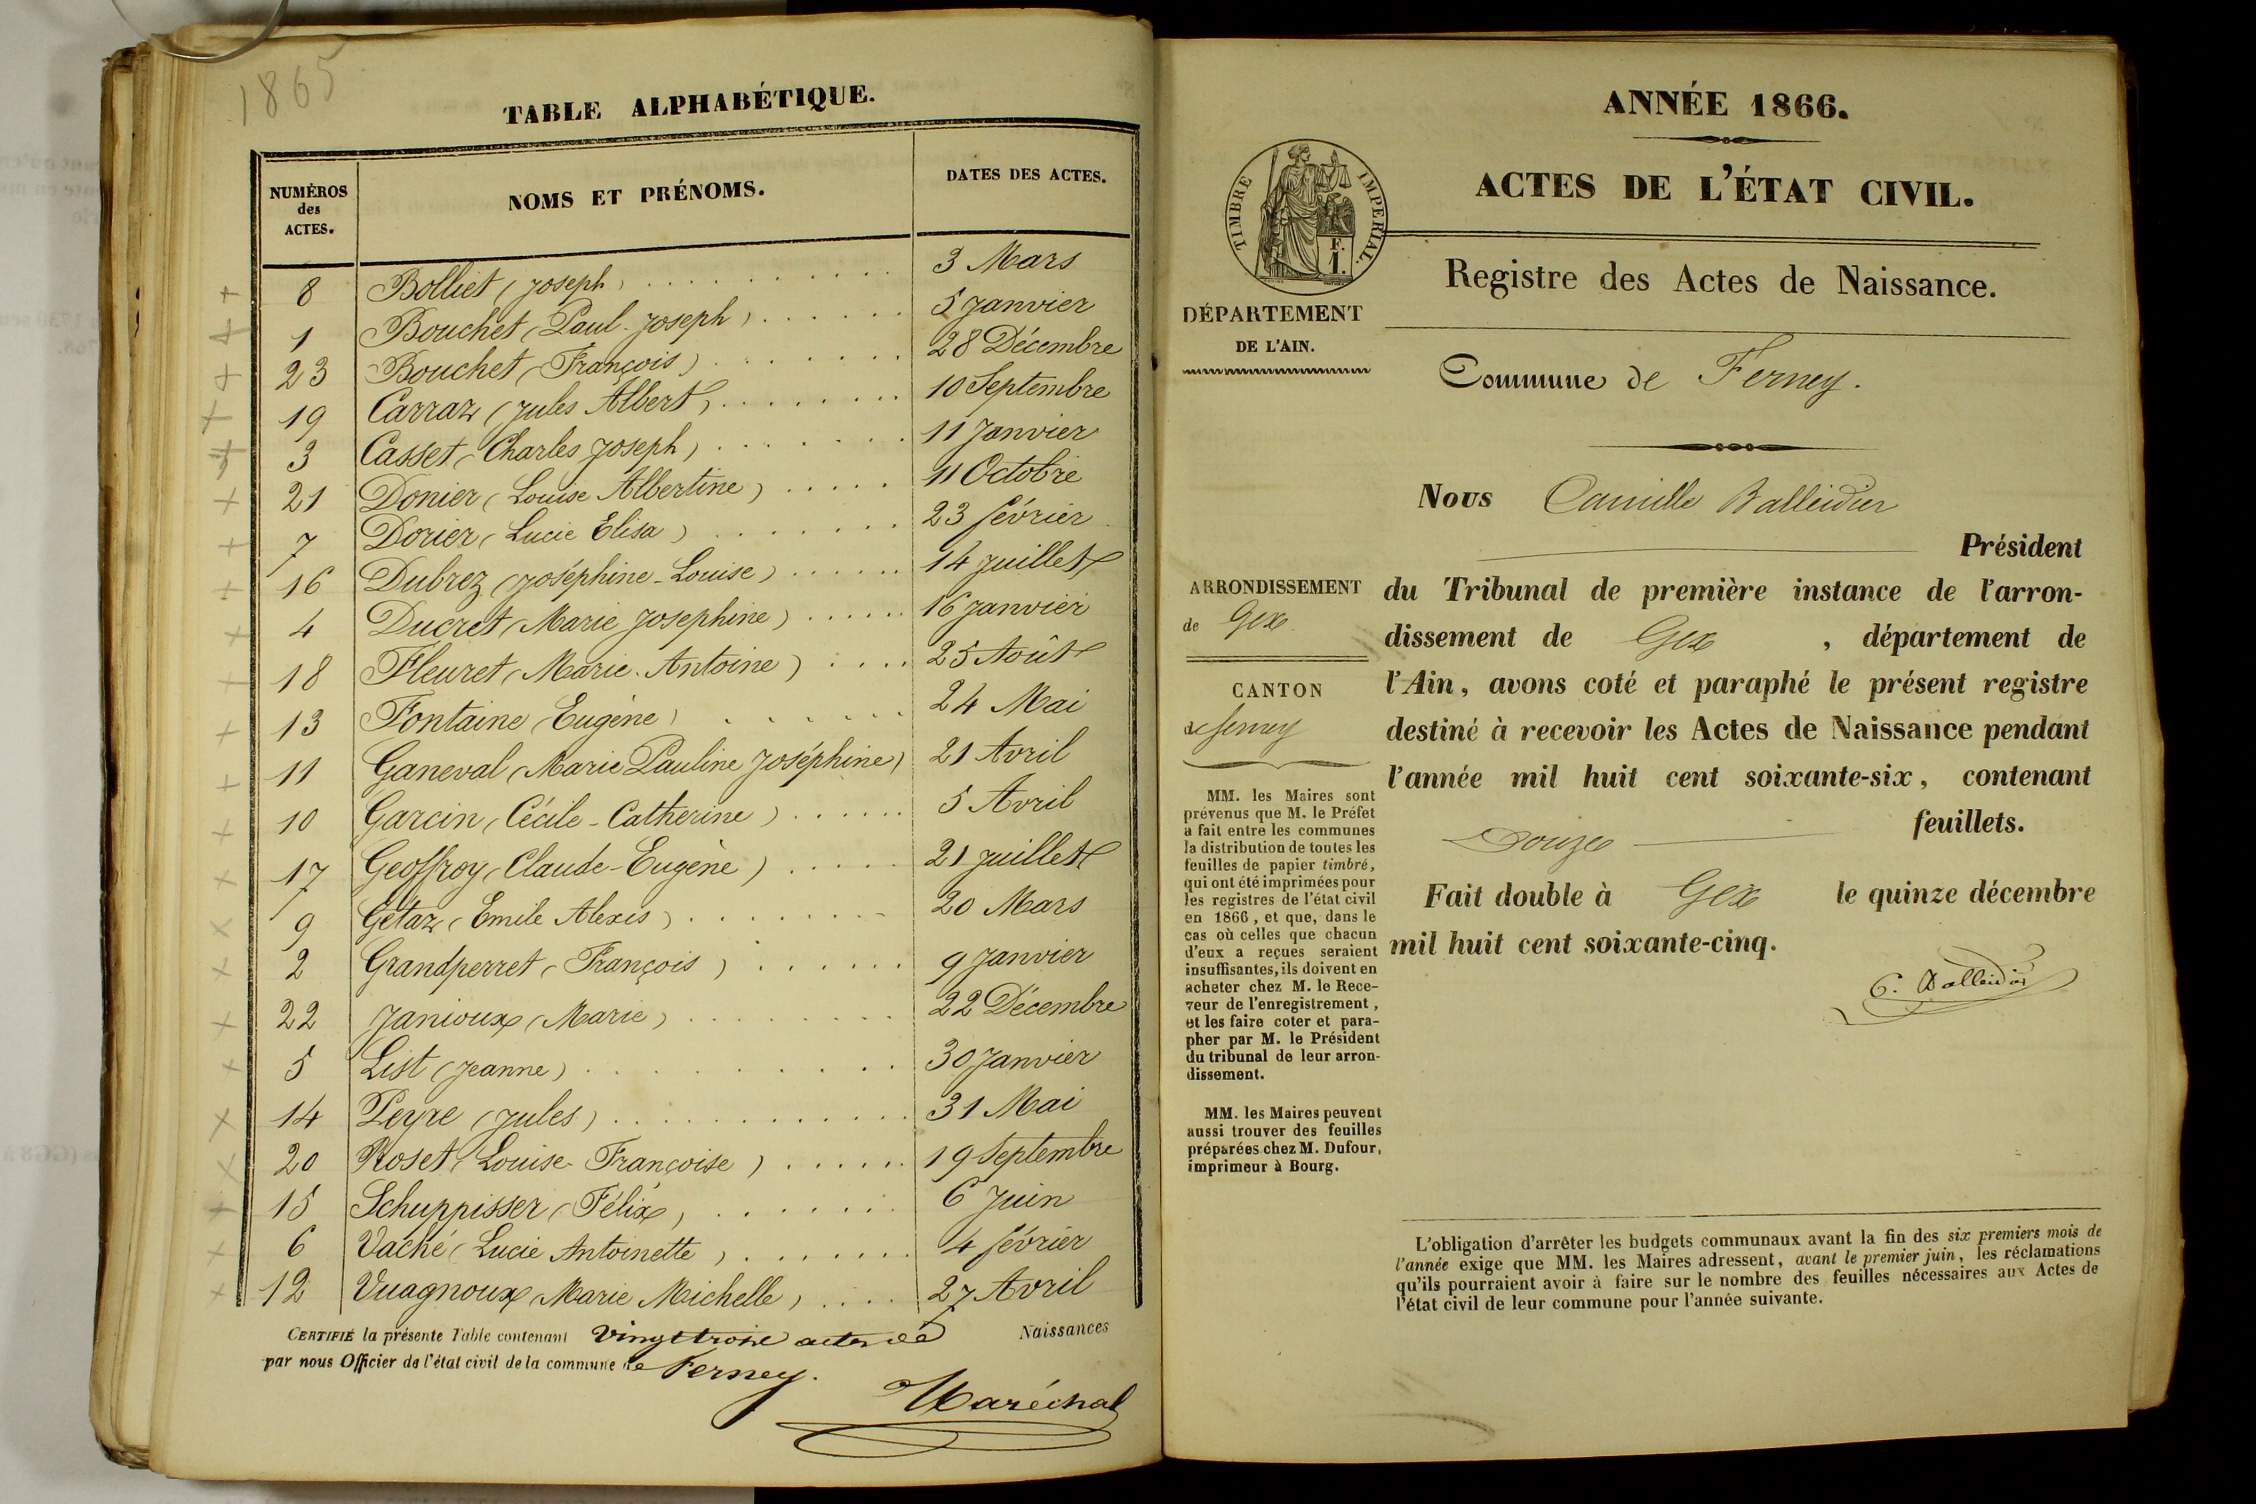 1865
TABLE ALPHABÉTIQUE.
NUMÉROS
des
ACTES.
NOMS ET PRÉNOMS.
DATES DES ACTES.
8 Bolliet (Joseph) 3 Mars
1 Bouchet (Paul-Joseph) 5 Janvier
23 Bouchet (François) 28 Décembre
19 Carraz (Jules Albert) 10 Septembre
3 Casset (Charles Joseph) 11 Janvier
21 Donier (Louise Albertine) 11 Octobre
7 Dorier (Lucie Elisa) 23 février
16 Dubrez (Joséphine-Louise) 14 Juillet
4 Ducret (Marie Josephine) 16 Janvier
18 Fleuret (Marie-Antoine) 25 Août
13 Fontaine (Eugène) 24 Mai
11 Ganeval (Marie Pauline Joséphine) 21 Avril
10 Garcin (Cécile-Catherine) 5 Avril
17 Geoffroy (Claude-Eugène) 21 Juillet
9 Gétaz (Emile Alexis) 20 Mars
2 Grandperret (François) 9 Janvier
22 Janioux (Marie) 22 Décembre
5 List (Jeanne) 30 Janvier
14 Peyre (Jules) 31 Mai
20 Roset (Louise-Françoise) 19 Septembre
15 Schuppisser (Félix) 6 Juin
6 Vaché (Lucie Antoinette) 4 février
12 Vuagnoux (Marie Michelle) 27 Avril
CERTIFIÉ la présente Table contenant Vingt trois actes de Naissances
par nous Officier de l'état civil de la commune de Ferney.
Maréchal
ANNÉE 1866.
ACTES DE L'ÉTAT CIVIL.
TIMBRE IMPERIAL.
F.
1.
Registre des Actes de Naissance.
DÉPARTEMENT
DE L'AIN.
Commune de Ferney.
Nous Camille Balleidier
Président
du Tribunal de première instance de l'arron-
dissement de Gex, département de
l'Ain, avons coté et paraphé le présent registre
destiné à recevoir les Actes de Naissance pendant
l'année mil huit cent soixante-six, contenant
Douze feuillets.
Fait double à Gex le quinze décembre
mil huit cent soixante-cinq.
C. Balleidier
ARRONDISSEMENT
de Gex
CANTON
de ferney
MM. les Maires sont
prévenus que M. le Préfet
a fait entre les communes
la distribution de toutes les
feuilles de papier timbré,
qui ont été imprimées pour
les registres de l'état civil
en 1866, et que, dans le
cas où celles que chacun
d'eux a reçues seraient
insuffisantes, ils doivent en
acheter chez M. le Rece-
veur de l'enregistrement,
et les faire coter et para-
pher par M. le Président
du tribunal de leur arron-
dissement.
MM. les Maires peuvent
aussi trouver des feuilles
préparées chez M. Dufour,
imprimeur à Bourg.
L'obligation d'arrêter les budgets communaux avant la fin des six premiers mois de
l'année exige que MM. les Maires adressent, avant le premier juin, les réclamations
qu'ils pourraient avoir à faire sur le nombre des feuilles nécessaires aux Actes de
l'état civil de leur commune pour l'année suivante.